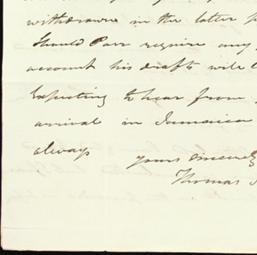 withdrawn in the latter
Should Parr require any
account his drafts will
Expecting to hear from
arrival in Jamaica
always
yours sincerely
Thomas